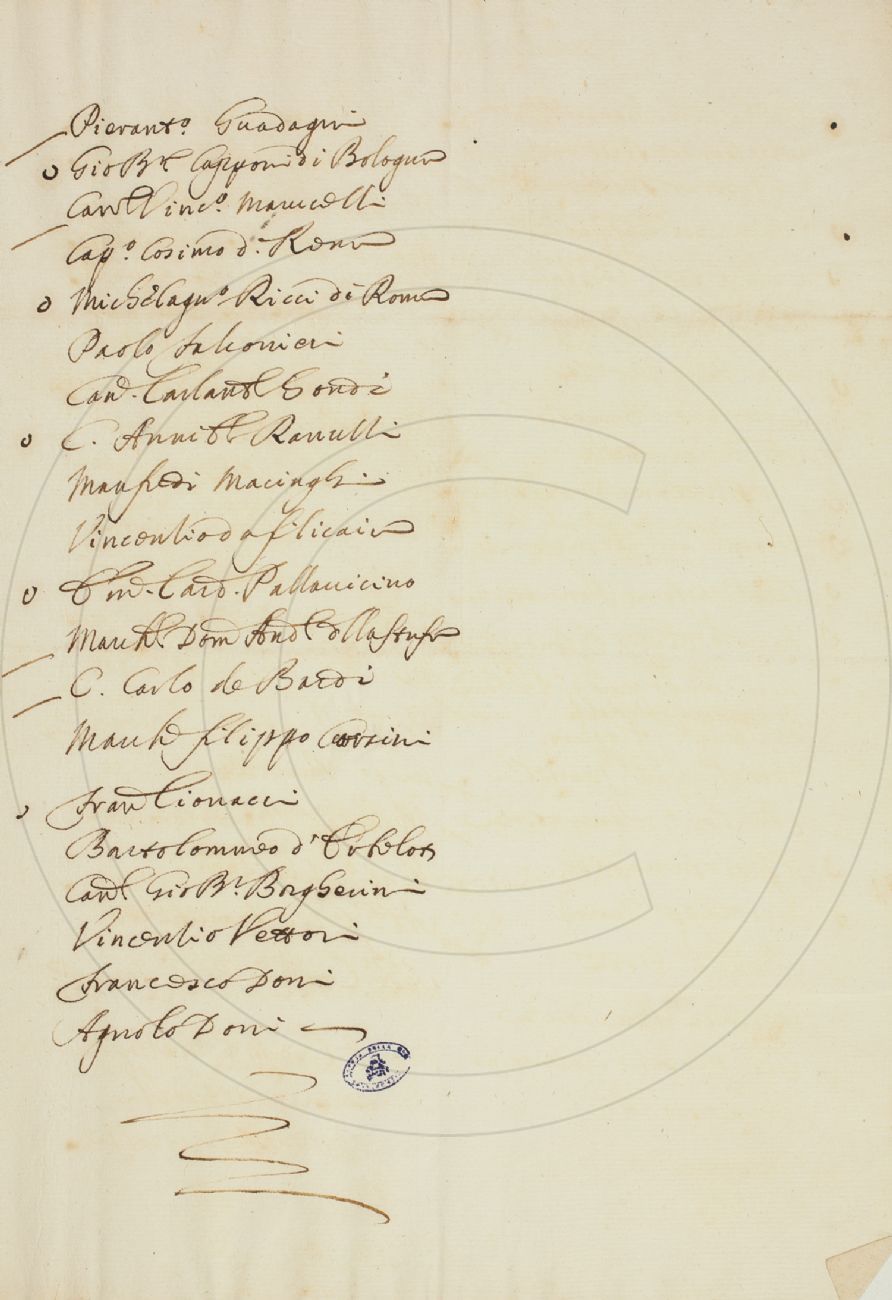 Pierant.º Guadagni
o Gio Br. Capponi di Bologna
Cav.r Vinc.º Marucelli
Cap.º Cosimo d. Rena
o Michelagn.º Ricci di Roma
Paolo Falconieri
Cand. Carlant. Gondi
o C. Annib. Ranulli
Manfredi Macinghi
Vincentio da Filicaia
o Card. Pallavicino
March. Dom And.
C. Carlo de Bardi
March. Filippo Corsini
Fran. Cionacci
Bartolommeo d'
Gio Br. Borgherini
Vincentio Vettori
Francesco Doni
Agnolo Doni